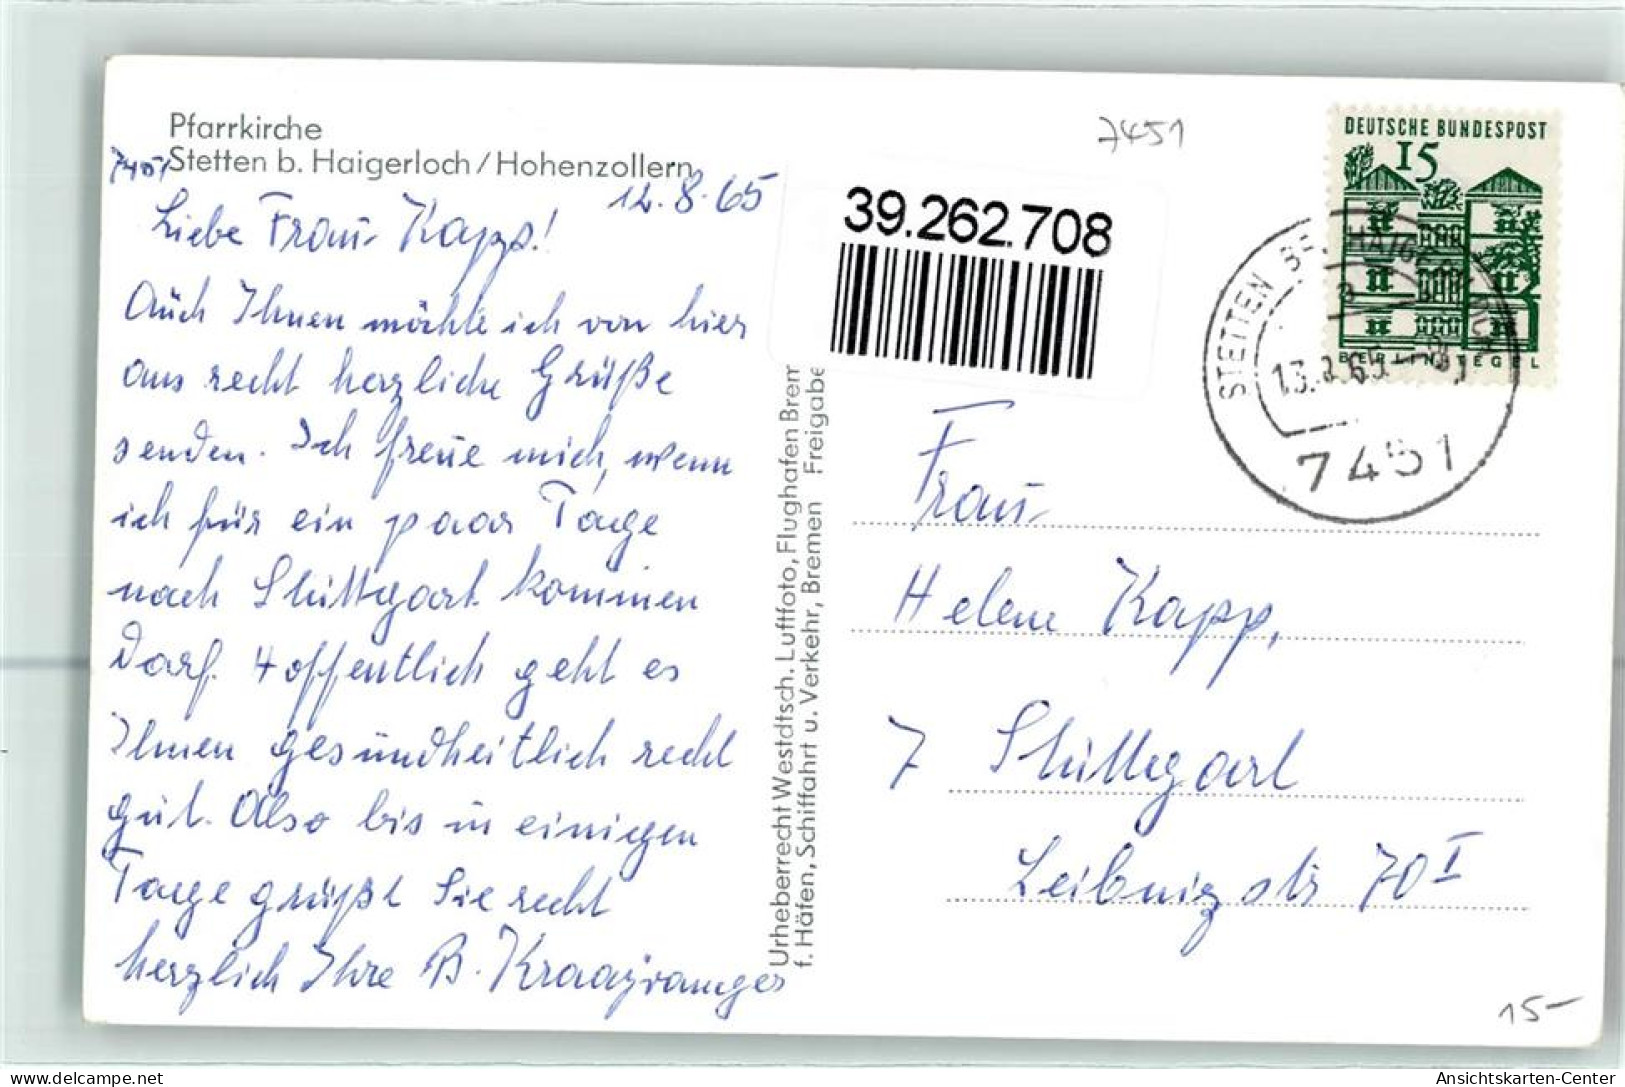 Pfarrkirche
Stetten b. Haigerloch/Hohenzollern
7451
12.8.65
Liebe Frau Kapp!
Auch Ihnen möchte ich von hier
aus recht herzliche Grüße
senden. Ich freue mich, wenn
ich für ein paar Tage
nach Stuttgart kommen
darf. Hoffentlich geht es
Ihnen gesundheitlich recht
gut. Also bis in einigen
Tage grüßt Sie recht
herzlich Ihre B.
Urheberrecht Westdtsch. Luftfoto, Flughafen Brem
f. Häfen, Schiffahrt u. Verkehr, Bremen Freigabe
39.262.708
7451
DEUTSCHE BUNDESPOST
15
BERLIN TEGEL
STETTEN BEI HAIGERLOCH
13.8.65
7451
Frau
Helene Kapp,
7 Stuttgart
Leibnizstr 70 I
15-
delcampe.net
Ansichtskarten-Center